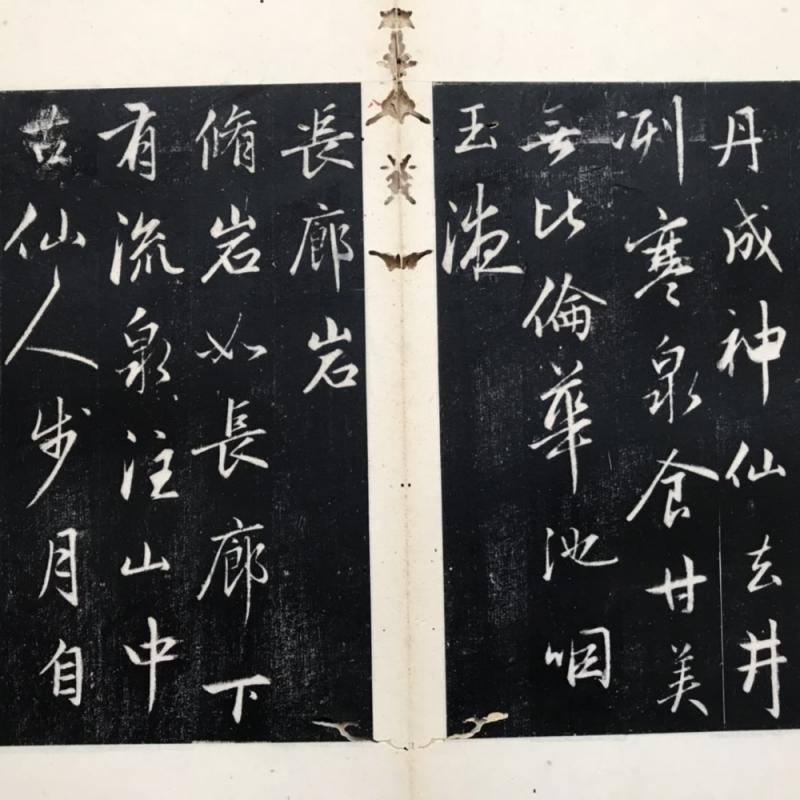 丹成神仙去井
冽寒泉食甘美
無比倫華池咽
玉液
長廊岩
脩岩如長廊下
有流泉注山中
古仙人步月自